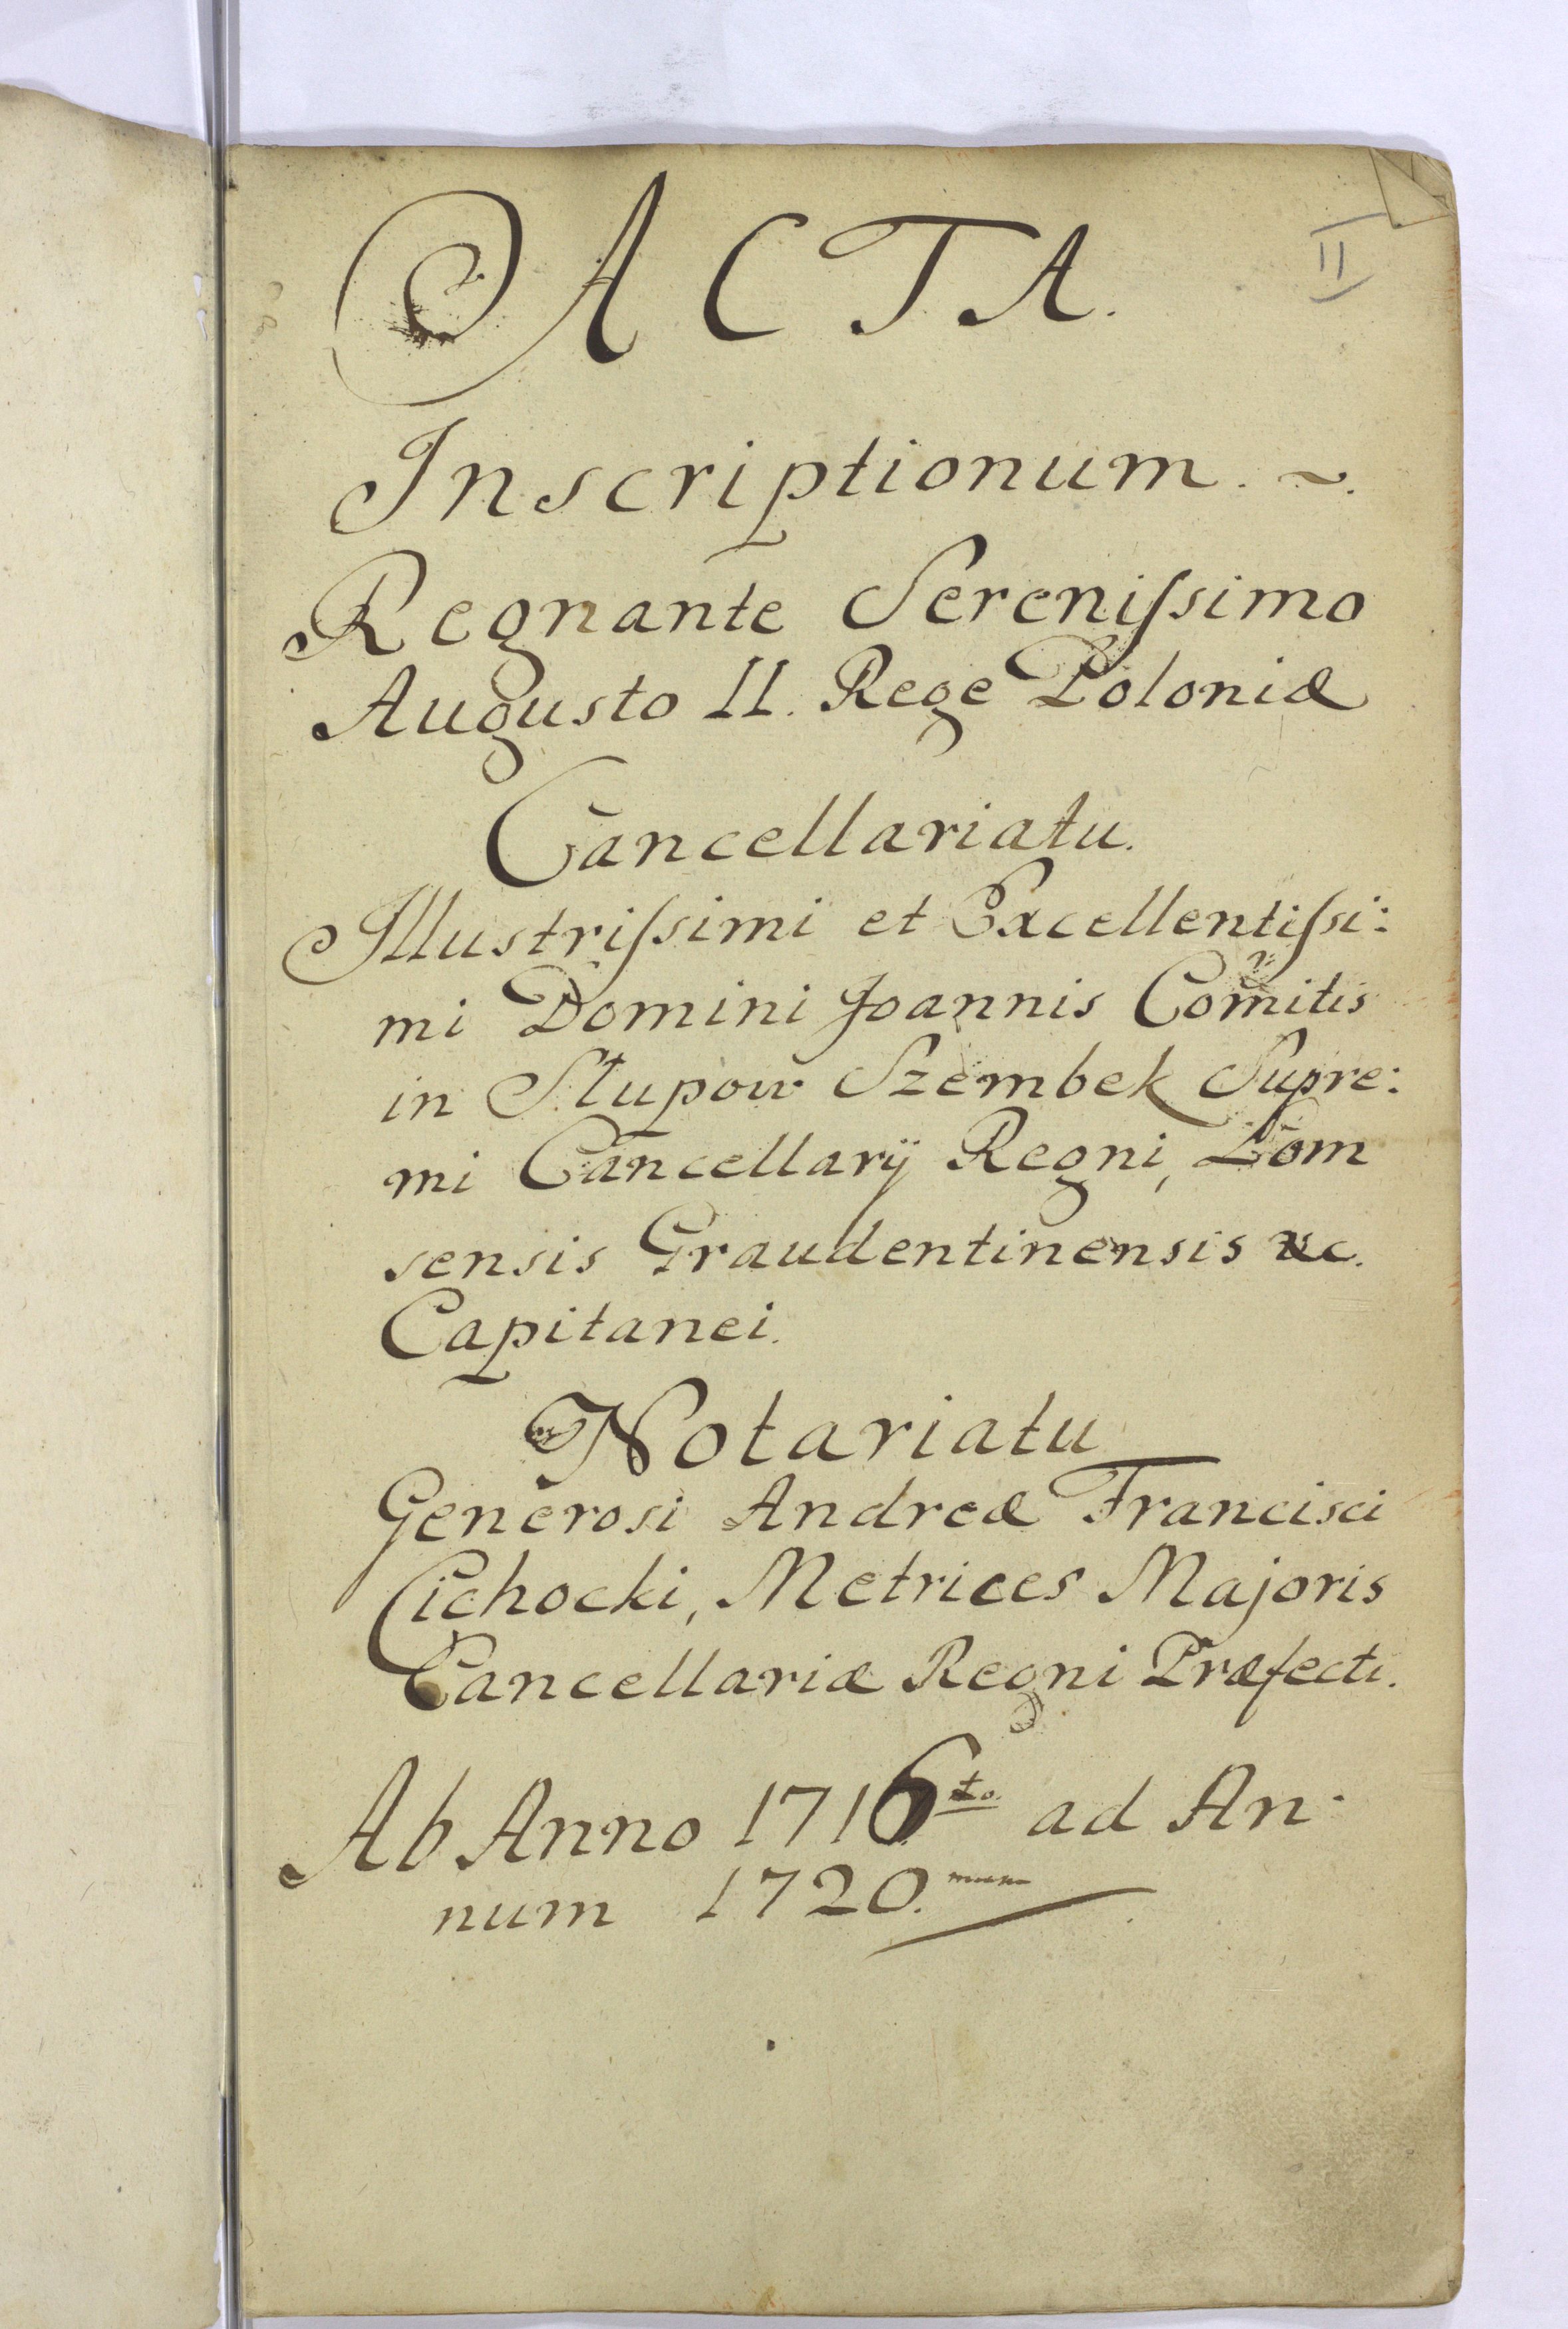 II
ACTA.
Inscriptionum. ~.
Regnante Sereniſsimo
Augusto II. Rege Poloniæ
Cancellariatu.
Illustriſsimi et Excellentiſsi:
mi Domini Joannis Comitis
in Słupow Szembek Supre:
mi Cancellarÿ Regni, Łom
sensis Graudentinensis &c.
Capitanei.
Notariatu
Generosi Andreæ Francisci
Cichocki, Metrices Majoris
Cancellariæ Regni Præfecti.
Ab Anno 1716to. ad An
num 1720.mum